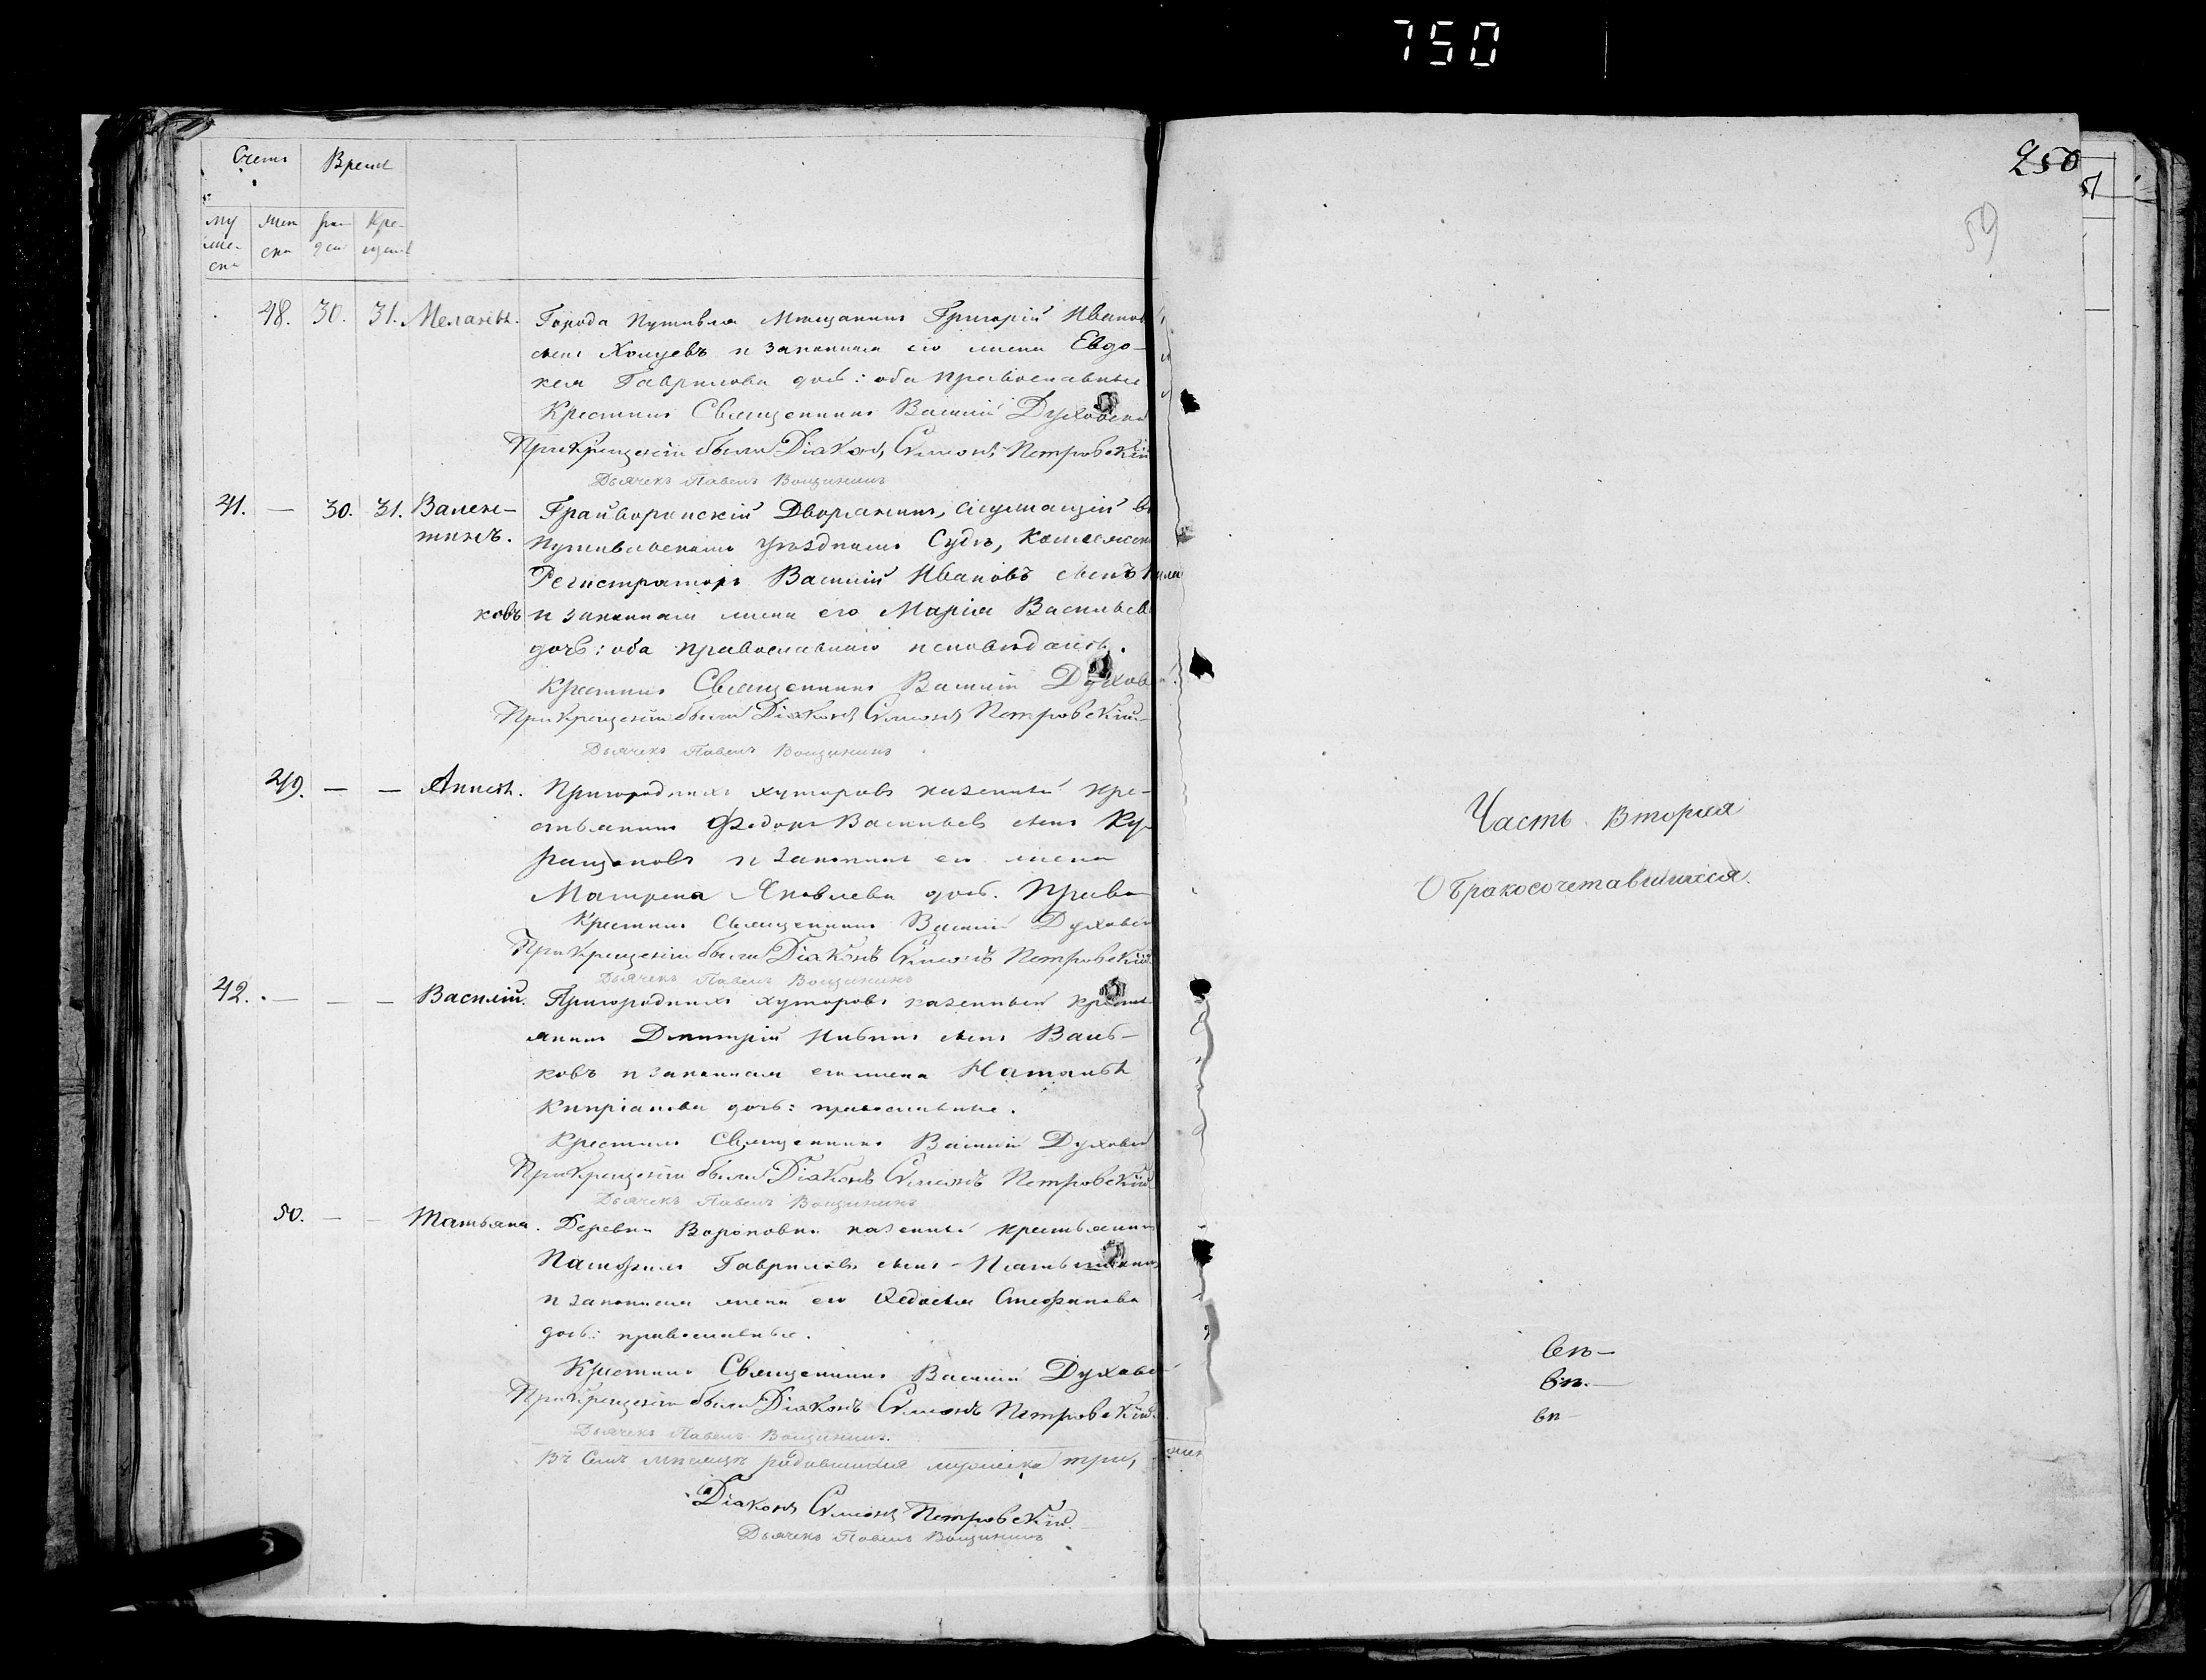 750
Счетъ Время
му
жеска
жен
ска
рож
дені
Кре-
щені
48. 30. 31. Меланія. Города Путивля Мѣщанинъ Григорій Иванов
сынъ Холуевъ и законная его жена Евдо-
кея Гаврилова дочь: оба православные
Крестилъ Священникъ Василій Духовск
При Крещеніи были Діаконъ Симеонъ Петровскій
Дьячекъ Павелъ Вощининъ
41. — 30. 31. Вален- Грайворонскій Дворянинъ, служащій въ
тинъ. Путивльскомъ Уѣздномъ Судѣ, Коллежск
Регистраторъ Василій Ивановъ сынъ
ковъ и законная жена его Марія Васильев
дочь: оба православнаго исповѣданія.
Крестилъ Священникъ Василій Духов
При Крещеніи были Діаконъ Симеонъ Петровскій
Дьячекъ Павелъ Вощининъ
49. — — Аннія. Пригородныхъ хуторовъ казенный кре-
стьянинъ Федоръ Васильевъ сынъ Ку-
и законная его жена
Матрена Яковлева дочь. Право
Крестилъ Священникъ Василій Духовск
При Крещеніи были Діаконъ Симеонъ Петровскій
Дьячекъ Павелъ Вощининъ
42. — — — Василій. Пригородныхъ хуторовъ казенный кресть
янинъ Дмитрій сынъ Вань-
ковъ и законная его жена Наталья
Кипріанова дочь: православные.
Крестилъ Священникъ Василій Духовск
При Крещеніи были Діаконъ Симеонъ Петровскій
Дьячекъ Павелъ Вощининъ
50. — — Татьяна. Деревни Вороновки казенный крестьянинъ
Памфилъ Гавриловъ сынъ
и законная жена его Ѳедосья Стефанова
дочь: православные.
Крестилъ Священникъ Василій Духовс
При Крещеніи были Діаконъ Симеонъ Петровскій
Дьячекъ Павелъ Вощининъ.
Въ семъ мѣсяцѣ родившихся мужеска три,
Діаконъ Симеонъ Петровскій.
Дьячекъ Павелъ Вощининъ
250
51
59
Часть Вторая
О бракосочетавшихся.